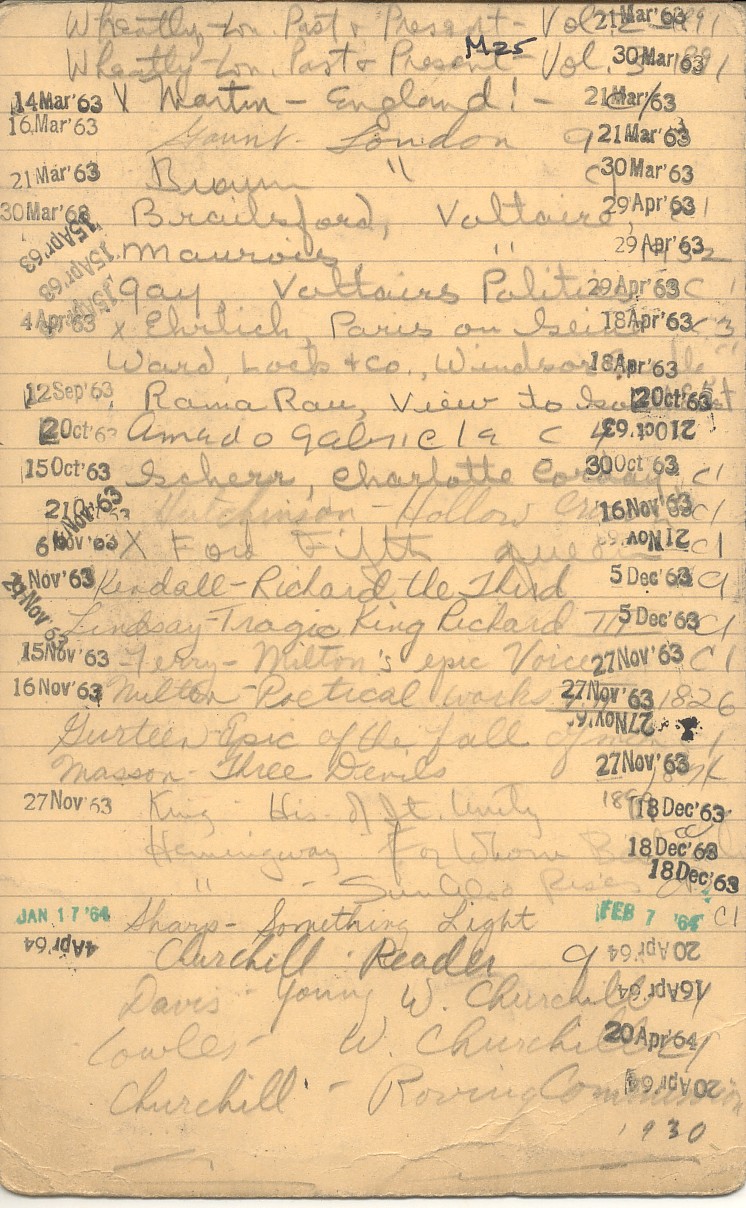 Wheatly-Lon. Past & Present- Vol. 2 21 Mar'63 1891
M25
Wheatly-Lon. Past & Present- Vol. 3 30 Mar'63 1891
14 Mar'63 X Martin - England! - 21 Mar'63
16 Mar'63 Gaunt- London 9 21 Mar'63
21 Mar'63 Brown " C1 30 Mar'63
30 Mar'63 Brailsford, Voltaire, 29 Apr'63 C1
15 Apr'63 Maurois " 29 Apr'63 1932
15 Apr'63 Gay, Voltaires Politics 29 Apr'63 C1
15 Apr'63
4 Apr'63 X Ehrlich Paris on Seine 18 Apr'63 C3
Ward, Lock & Co., Windsor 18 Apr'63
12 Sep'63 Rama Rau, View to 2 Oct'63
2 Oct'63 Amado Gabriela C 4 21 Oct'63
15 Oct'63 Scherr, Charlotte Corday 30 Oct'63 C1
21 Hutchinson - Hollow 16 Nov'63 C1
6 Nov'63
6 Nov'63 X Ford Fifth queen 21 Nov'63 C1
Nov'63 Kendall-Richard the Third 5 Dec'63 9
21 Nov'63 Lindsay-Tragic King Richard III 5 Dec'63 C1
15 Nov'63 Ferry- Milton's epic Voice 27 Nov'63 C1
16 Nov'63 Milton- Poetical works 27 Nov'63 1826
Gurteen-Epic of the fall of man 27 Nov'63 1
Masson- Three Devils 27 Nov'63 1874
27 Nov'63 King - His. of It. Unity 1899 18 Dec'63
Hemingway - For Whom 18 Dec'63
" - Sun Also Rises 18 Dec'63
JAN 17 '64 Sharp- Something Light FEB 7 '64 C1
4 Apr'64 Churchill Reader 9 20 Apr'64
Davis - Young W. Churchill 16 Apr'64
Cowles- W. Churchill 20 Apr'64
Churchill - Roving Commission 20 Apr'64
1930